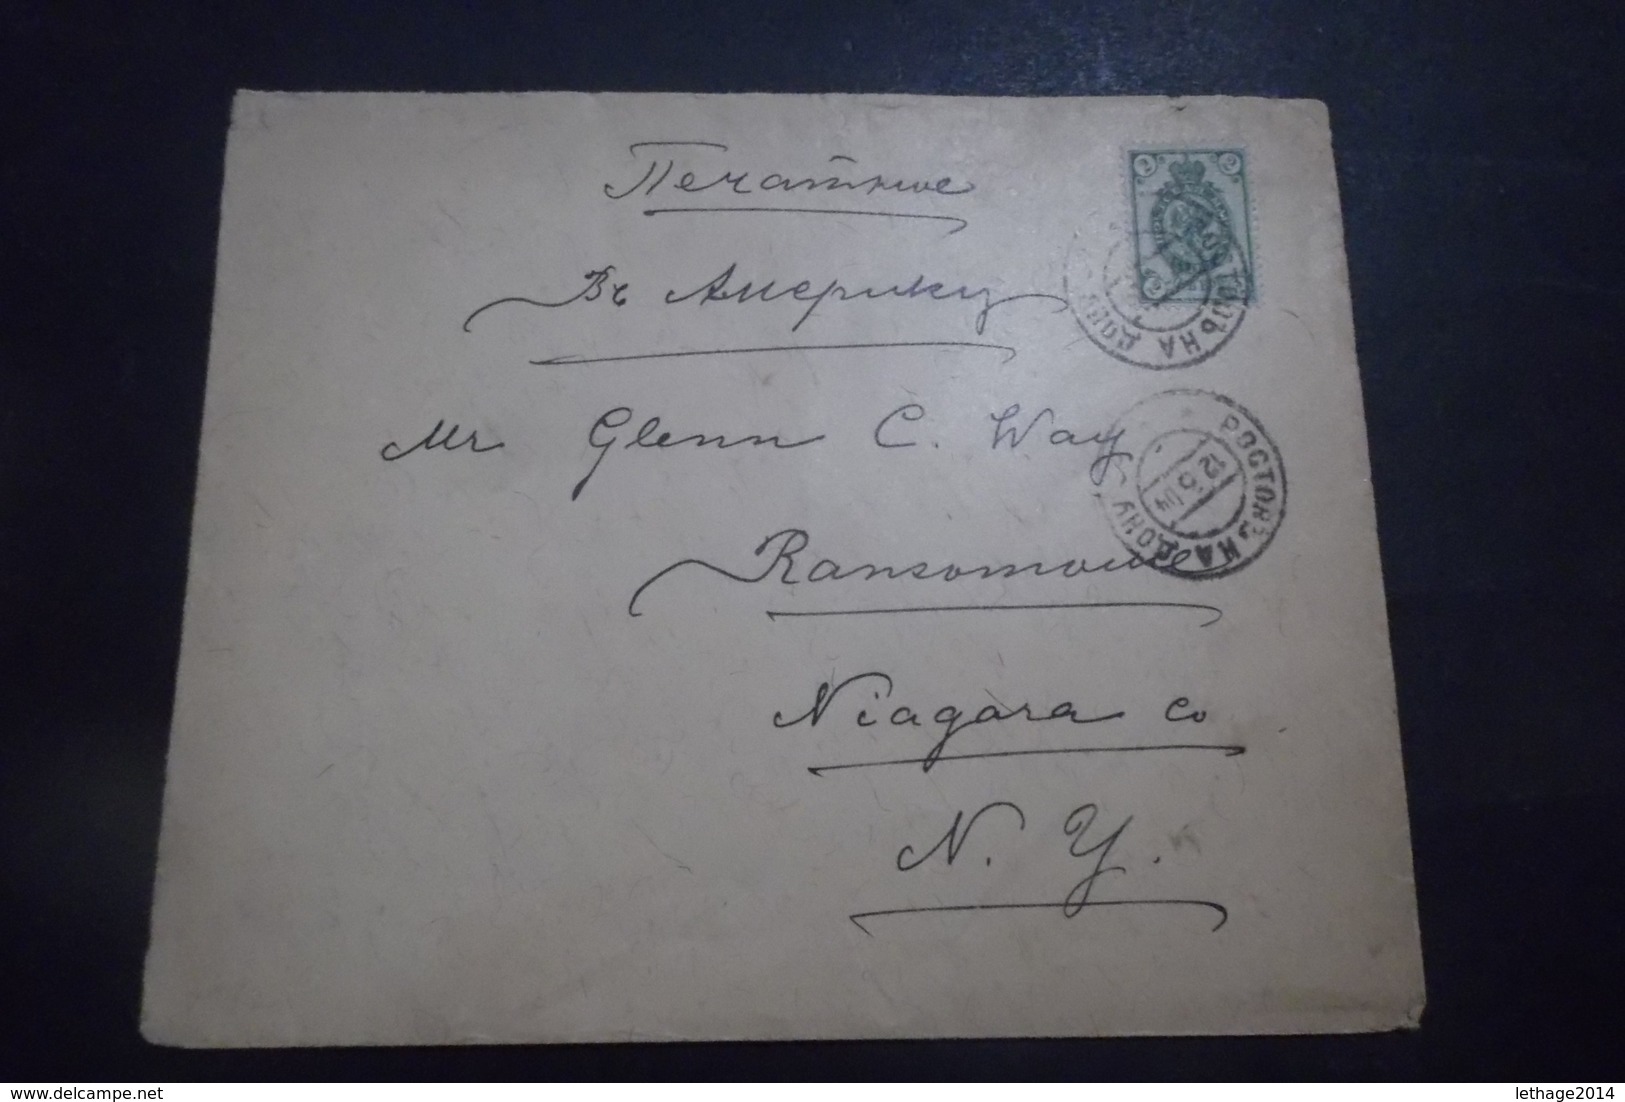 Печатное
Въ Америку
Mr Glenn C. Way
Ransomville
Niagara Co
N. Y.
2 2
2
РОСТОВЪ НА ДОНУ
РОСТОВЪ НА ДОНУ
12 5 04
www.delcampe.net
lethage2014